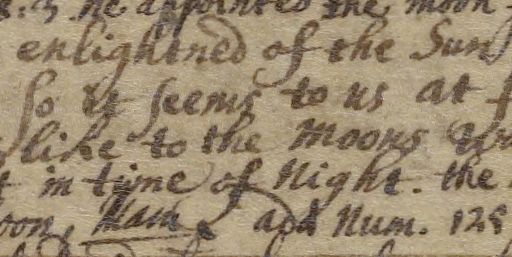 he appointed the moon
enlightned of the Sun
so it seems to us at
like to the Moons
in time of Night. the
oon, Mam. and Num. 125